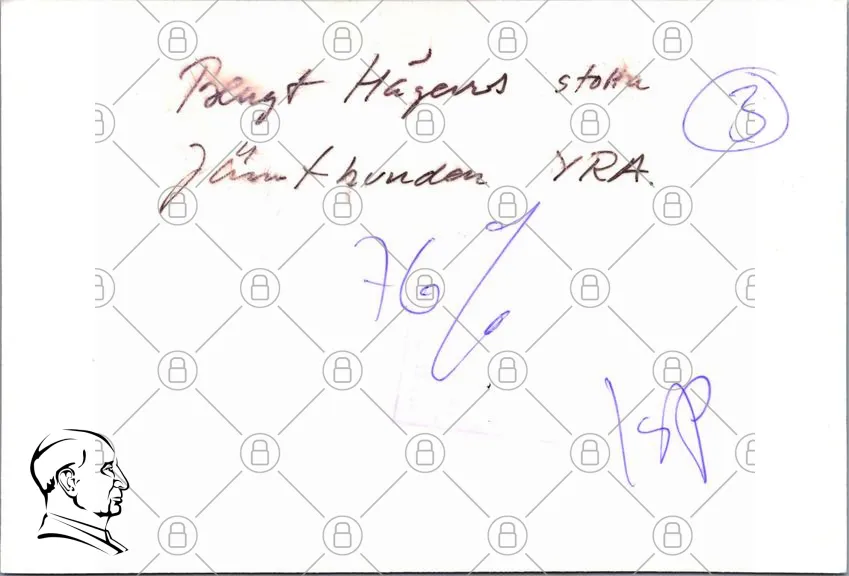 Bengt Hägers stora
3
Jämthunden YRA.
76%
1sp